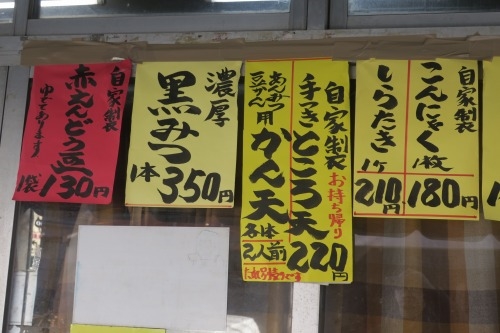 自家製
赤えんどう豆
ゆでてあります
1袋130円
濃厚
黒みつ
1本350円
自家製お持ち帰り
手つきところ天
220円
あんみつ
豆かん用
かん天
各1本
2人前
自家製
こんにゃく
1枚
180円
しらたき
1ケ
210円